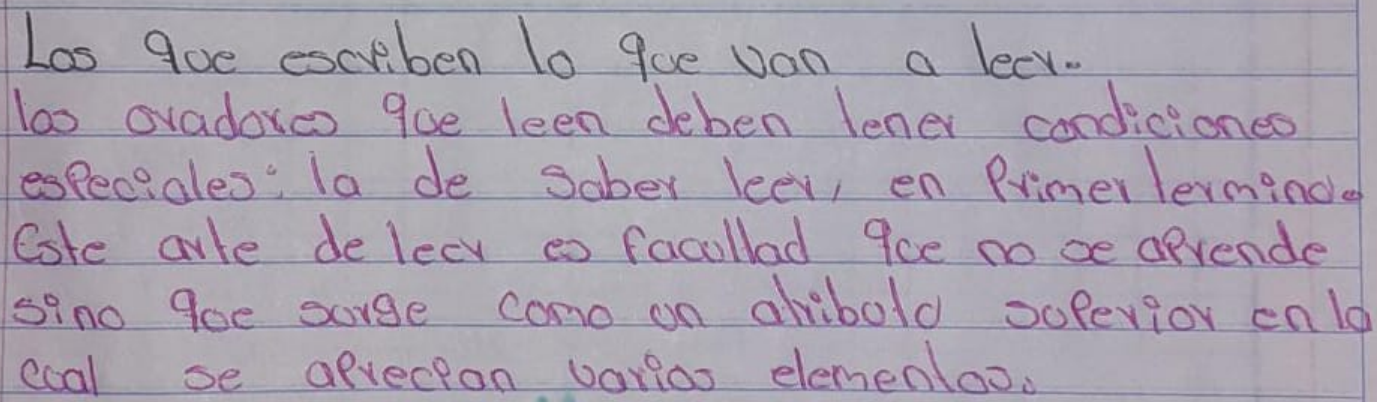 Los que escriben lo que van a leer.
los oradores que leen deben tener condiciones
especiales: la de saber leer, en Primer termino.
Este arte de leer es facultad que no se aprende
sino que surge como un atributo superior en lo
cual se aprecian varios elementos.